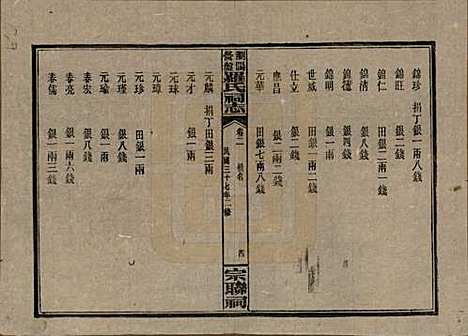 錦珍 捐丁銀一兩八錢
錦旺 銀二錢
錦仁 田銀二兩一錢
錦清 銀八錢
錦德 銀四錢
錦明 銀一兩
世威 田銀二兩一錢
仕立
應昌 銀二兩二錢
元華 田銀七兩八錢
羅氏祠志
卷二 捐名
民國三十七年二修
四
宗聯祠
元麟 捐丁田銀三兩
元才 銀一兩二錢
元珠
元璋
元珍 田銀一兩
元瑾 銀一兩
元瑜 銀二錢
春宏 銀八錢
春亮 銀一兩六錢
春儒 銀一兩三錢